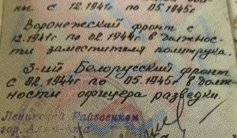 с 12.1941г по 05.1945г.
Воронежский фронт с
12.1941г по 02.1944г в должнос-
ти заместителя политрука.
3-ий Белорусский фронт
с 02.1944г по 05.1945г в долж-
ности офицера разведки.
Ленинским Райвоенком
гор. Алма-Ата